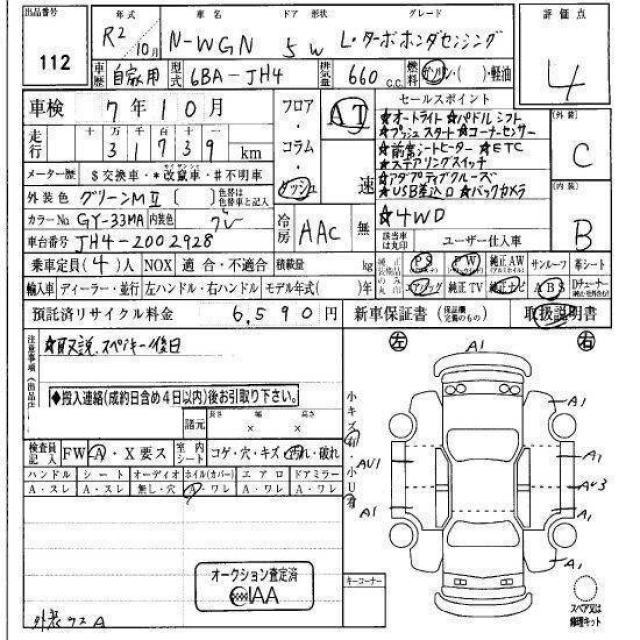 出品番号 年式 車名 ドア 形状 グレード 評価点
112 R2/10月 N-WGN 5W L・ターボホンダセンシング 4
車歴 自家用 型式 6BA-JH4 排気量 660 c.c. 燃料 ガソリン・( )・軽油
車検 7年10月 フロア・コラム・ダッシュ AT 速 セールスポイント
走行 十 万 千 百 十 一
31739 km
★オートライト ★パドルシフト
★プッシュスタート ★コーナーセンサー
★前席シートヒーター ★ETC
★ステアリングスイッチ
★アダプティブクルーズ
★USB差込口 ★バックカメラ
★4WD
(外装) C
(内装) B
メーター歴 $交換車・*改竄車・#不明車
外装色 グリーンMⅡ ( ) 色替は色替車と記入
カラーNo. GY-33MA 内装色 グレー 冷房 AAC 無
車台番号 JH4-2002928 該当車は丸印 ユーザー仕入車
乗車定員(4)人 NOX 適合・不適合 積載量 kg
純正装備品のみ丸印 PS PW 純正AW サンルーフ 革シート
輸入車 ディーラー・並行 左ハンドル・右ハンドル モデル年式( )年
エアバッグ 純正TV 純正ナビ ABS Dチューナー
預託済リサイクル料金 6,590円 新車保証書 (保証欄完備のもの) 取扱説明書
注意事項 ★取説、スペアキー後日
◆搬入連絡(成約日含め4日以内)後お引取り下さい。
諸元 長さ 幅 高さ
× ×
検査員記入 FW A・X要ス 室内シート コゲ・穴・キズ・汚れ・破れ
ハンドル シート オーディオ ホイル(カバー) エアロ ドアミラー
A・スレ A・スレ 無し・穴 A・ワレ A・ワレ A・ワレ
小キズ有・小U有
左 右
A1
A1
AU1 A1
AU3
A1 A1
A1
オークション査定済
IAA
キーコーナー
スペア又は修理キット
外装ウスA